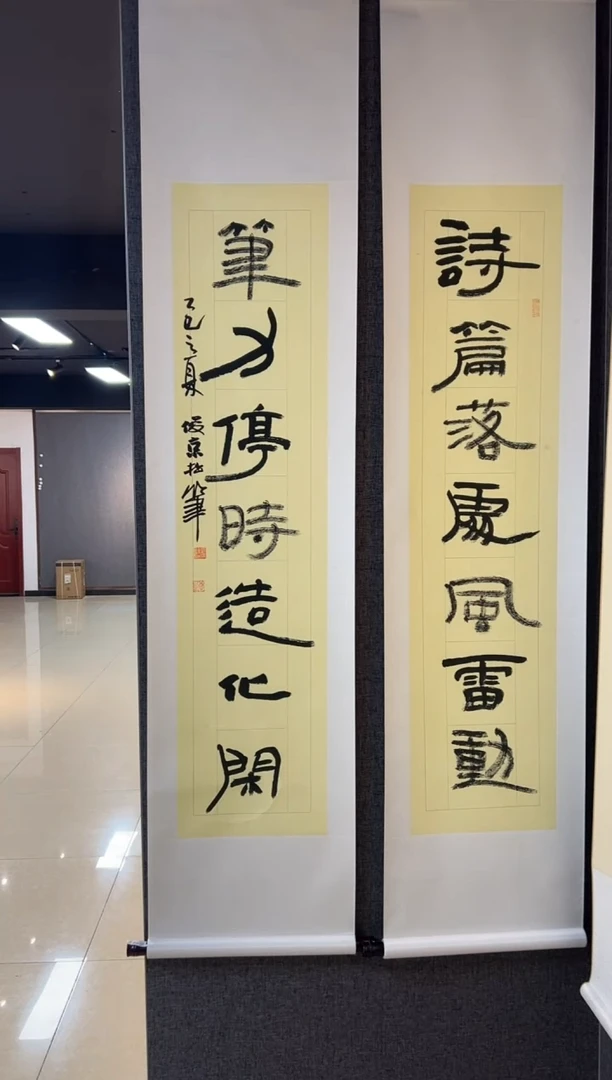 詩篇落處風雷動
筆力停時造化閑
乙巳之夏
京松筆